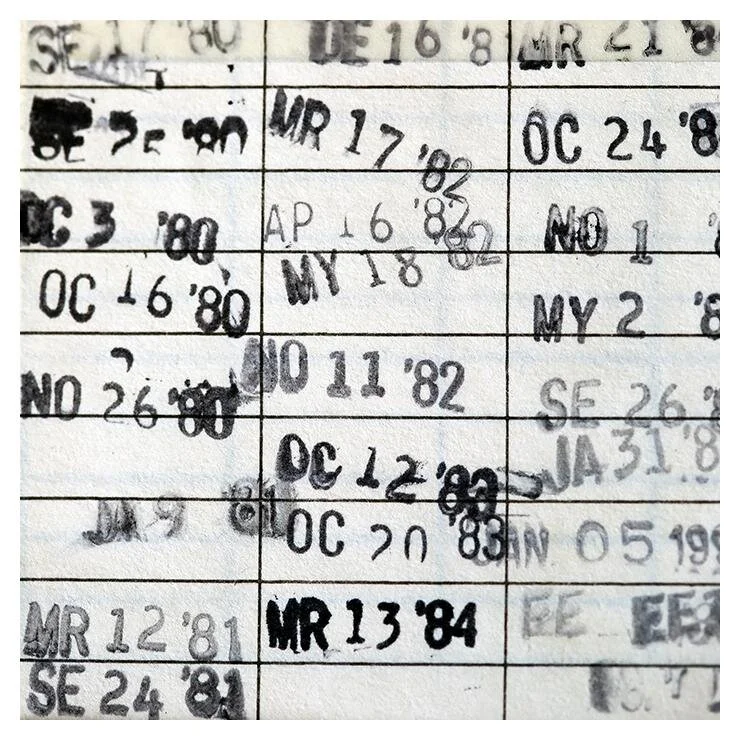 SE 17 '80
SE 25 '80
OC 3 '80
OC 16 '80
NO 26 '80
JA 9 '81
MR 12 '81
SE 24 '81
DE 16 '8
MR 17 '82
AP 16 '82
MY 18 '82
NO 11 '82
OC 12 '83
OC 20 '83
MR 13 '84
MR 21 '8
OC 24 '8
NO 1 '8
MY 2 '8
SE 26 '8
JA 31 '8
JAN 05 199